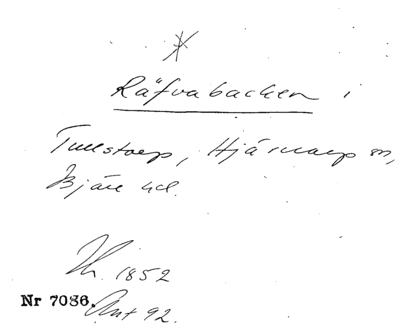 Räfvabacken i
Tullstorp, Hjärnarp sn,
Bjäre hd.
Th. 1852
Nr 7086.
Ant 92.